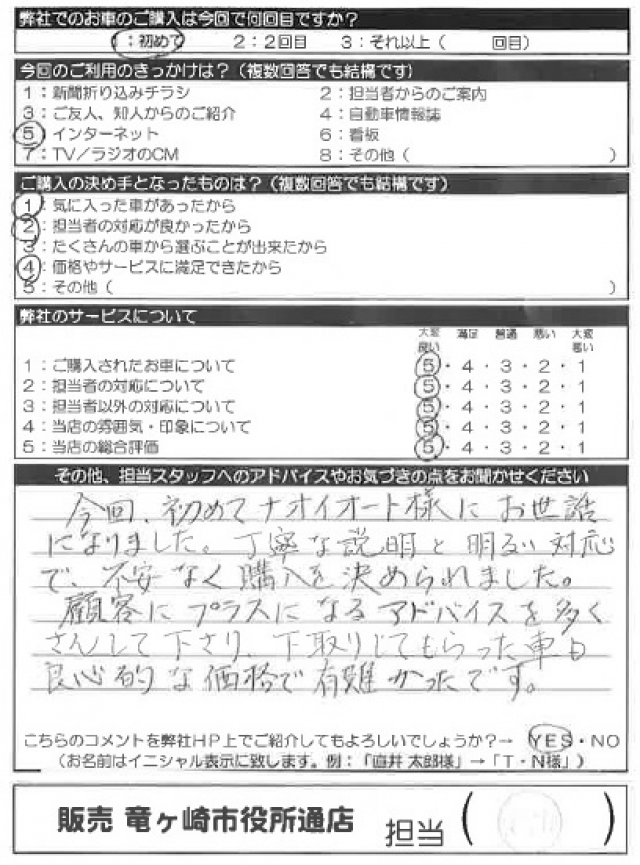 弊社でのお車のご購入は今回で何回目ですか？
1：初めて 2：2回目 3：それ以上（ 回目）
今回のご利用のきっかけは？（複数回答でも結構です）
1：新聞折り込みチラシ 2：担当者からのご案内
3：ご友人、知人からのご紹介 4：自動車情報誌
5：インターネット 6：看板
7：TV／ラジオのCM 8：その他（ ）
ご購入の決め手となったものは？（複数回答でも結構です）
1：気に入った車があったから
2：担当者の対応が良かったから
3：たくさんの車から選ぶことが出来たから
4：価格やサービスに満足できたから
5：その他（ ）
弊社のサービスについて
大変良い 満足 普通 悪い 大変悪い
1：ご購入されたお車について 5・4・3・2・1
2：担当者の対応について 5・4・3・2・1
3：担当者以外の対応について 5・4・3・2・1
4：当店の雰囲気・印象について 5・4・3・2・1
5：当店の総合評価 5・4・3・2・1
その他、担当スタッフへのアドバイスやお気づきの点をお聞かせください
今回、初めてナオイオート様にお世話
になりました。丁寧な説明と明るい対応
で、不安なく購入を決められました。
顧客にプラスになるアドバイスを多く
さんして下さり、下取りしてもらった車も
良心的な価格で有難かったです。
こちらのコメントを弊社HP上でご紹介してもよろしいでしょうか？→ YES・NO
（お名前はイニシャル表示に致します。例：「直井 太郎様」→「T・N様」）
販売 竜ヶ崎市役所通店 担当（ ）